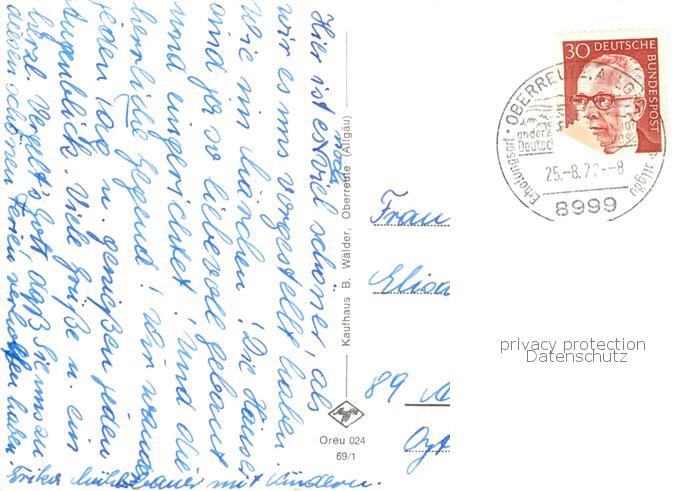 Hier ist es viel schöner, als
noch
wir es uns vorgestellt haben.
Wie im Märchen! Die Häuser
sind ja so liebevoll gebaut
und eingerichtet! Und die
herrliche Gegend! Wir wandern
jeden Tag u. genießen jeden
Augenblick. Viele Grüße u. ein
herzl. Vergelt's Gott, daß Sie uns zu
diesen schönen Ferien verholfen haben
Erika Mühlbauer mit Kindern.
Kaufhaus B. Wälder, Oberreute (Allgäu)
Oreu 024
69/1
Frau
89 A
30 DEUTSCHE
BUNDESPOST
OBERREUTE
Erholungsort
Allgäu
an der
Deutsch
25.-8.72.-8
8999
privacy protection
Datenschutz